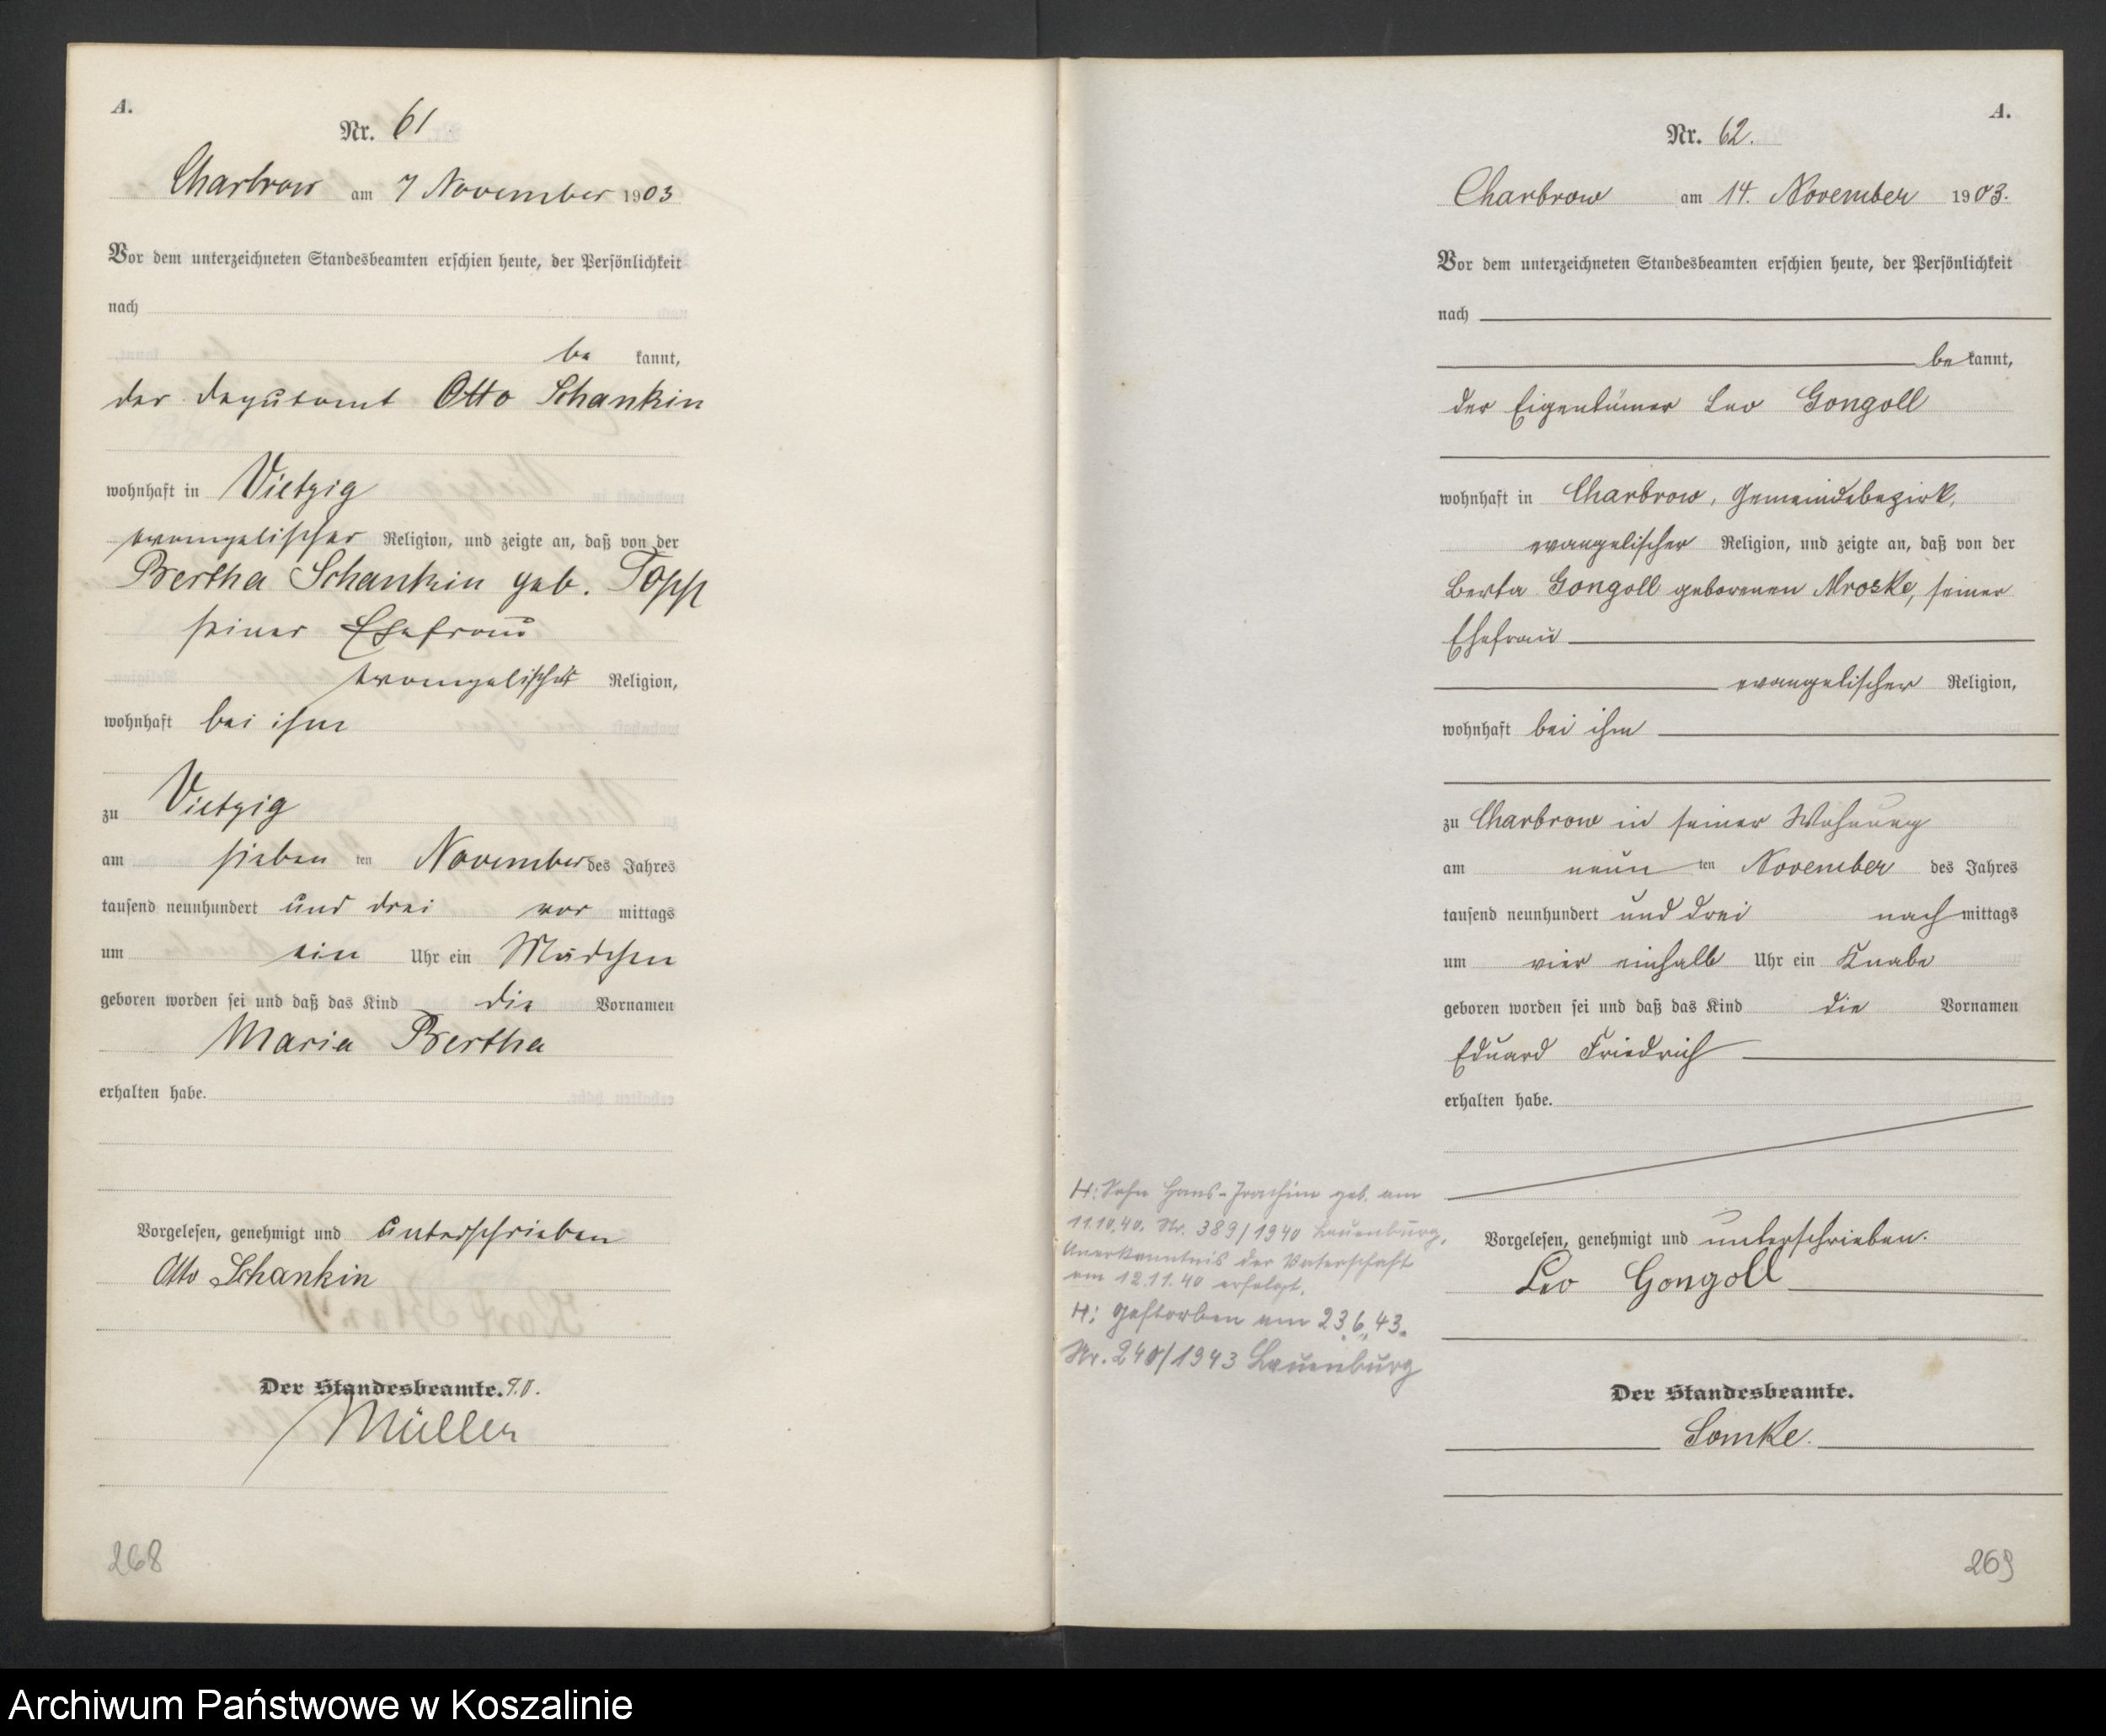 A.
Nr. 61
Charbrow am 7 November 1903
Vor dem unterzeichneten Standesbeamten erschien heute, der Persönlichkeit
nach
be kannt,
der Deputant Otto Schankin
wohnhaft in Vietzig
evangelischer Religion, und zeigte an, daß von der
Bertha Schankin geb. Topp
seiner Ehefrau
evangelischer Religion,
wohnhaft bei ihm
zu Vietzig
am sieben ten November des Jahres
tausend neunhundert und drei vor mittags
um ein Uhr ein Mädchen
geboren worden sei und daß das Kind die Vornamen
Maria Bertha
erhalten habe.
Vorgelesen, genehmigt und unterschrieben
Otto Schankin
Der Standesbeamte.
Müller
268
A.
Nr. 62.
Charbrow am 14. November 1903.
Vor dem unterzeichneten Standesbeamten erschien heute, der Persönlichkeit
nach
be kannt,
der Eigentümer Leo Gongoll
wohnhaft in Charbrow, Gemeindebezirk,
evangelischer Religion, und zeigte an, daß von der
Berta Gongoll geborenen Mroske, seiner
Ehefrau
evangelischer Religion,
wohnhaft bei ihm
zu Charbrow in seiner Wohnung
am neun ten November des Jahres
tausend neunhundert und drei nach mittags
um vier einhalb Uhr ein Knabe
geboren worden sei und daß das Kind die Vornamen
Eduard Friedrich
erhalten habe.
H: Sohn Hans-Joachim geb. am
11.10.40. Nr. 389/1940 Lauenburg,
Anerkenntnis der Vaterschaft
am 12.11.40 erfolgt.
H: Gestorben am 23.6.43.
Nr. 240/1943 Lauenburg
Vorgelesen, genehmigt und unterschrieben.
Leo Gongoll
Der Standesbeamte.
Lomke.
269
Archiwum Państwowe w Koszalinie